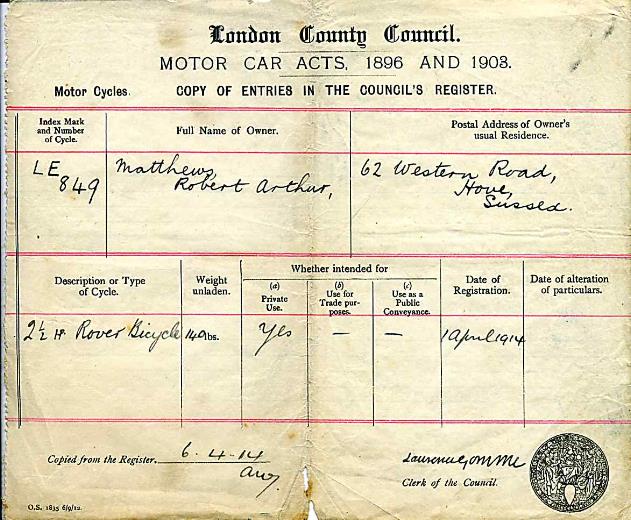 London County Council.
MOTOR CAR ACTS, 1896 AND 1903.
Motor Cycles. COPY OF ENTRIES IN THE COUNCIL'S REGISTER.
Index Mark
and Number
of Cycle.
Full Name of Owner.
Postal Address of Owner's
usual Residence.
LE
849
Matthews,
Robert Arthur,
62 Western Road,
Hove,
Sussed.
Description or Type
of Cycle.
Weight
unladen.
Whether intended for
(a)
Private
Use.
(b)
Use for
Trade pur-
poses.
(c)
Use as a
Public
Conveyance.
Date of
Registration.
Date of alteration
of particulars.
2½ H. Rover Bicycle
140 lbs.
Yes
—
—
1 April 1914
Copied from the Register, 6.4.14
Clerk of the Council.
O.S. 1835 6/9/12.